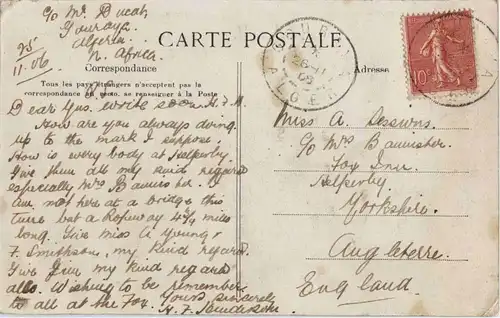 c/o Mr Ducat,
Gouraya,
Algeria
N. Africa
25
11-06
CARTE POSTALE
Correspondance
Adresse
Tous les pays étrangers n'acceptent pas la
correspondance au recto. se renseigner à la Poste
Dear Gus. Write soon. H. F. H.
How are you always doing
up to the mark I suppose.
How is every body at Helperby.
Give them all my kind regards
especially Mrs Bannister. I
am not here at a bridge this
time but a Ropeway 4¾ miles
long. Give Miss A Young &
F. Smithson, my kind regards.
Give Gem my kind regards
also. Wishing to be remembered
to all at the Fox. Yours Sincerely
H. F.
Miss A.
c/o Mrs Bannister
Fox Inn
Helperby
Yorkshire.
Angleterre.
England
10
ALGER